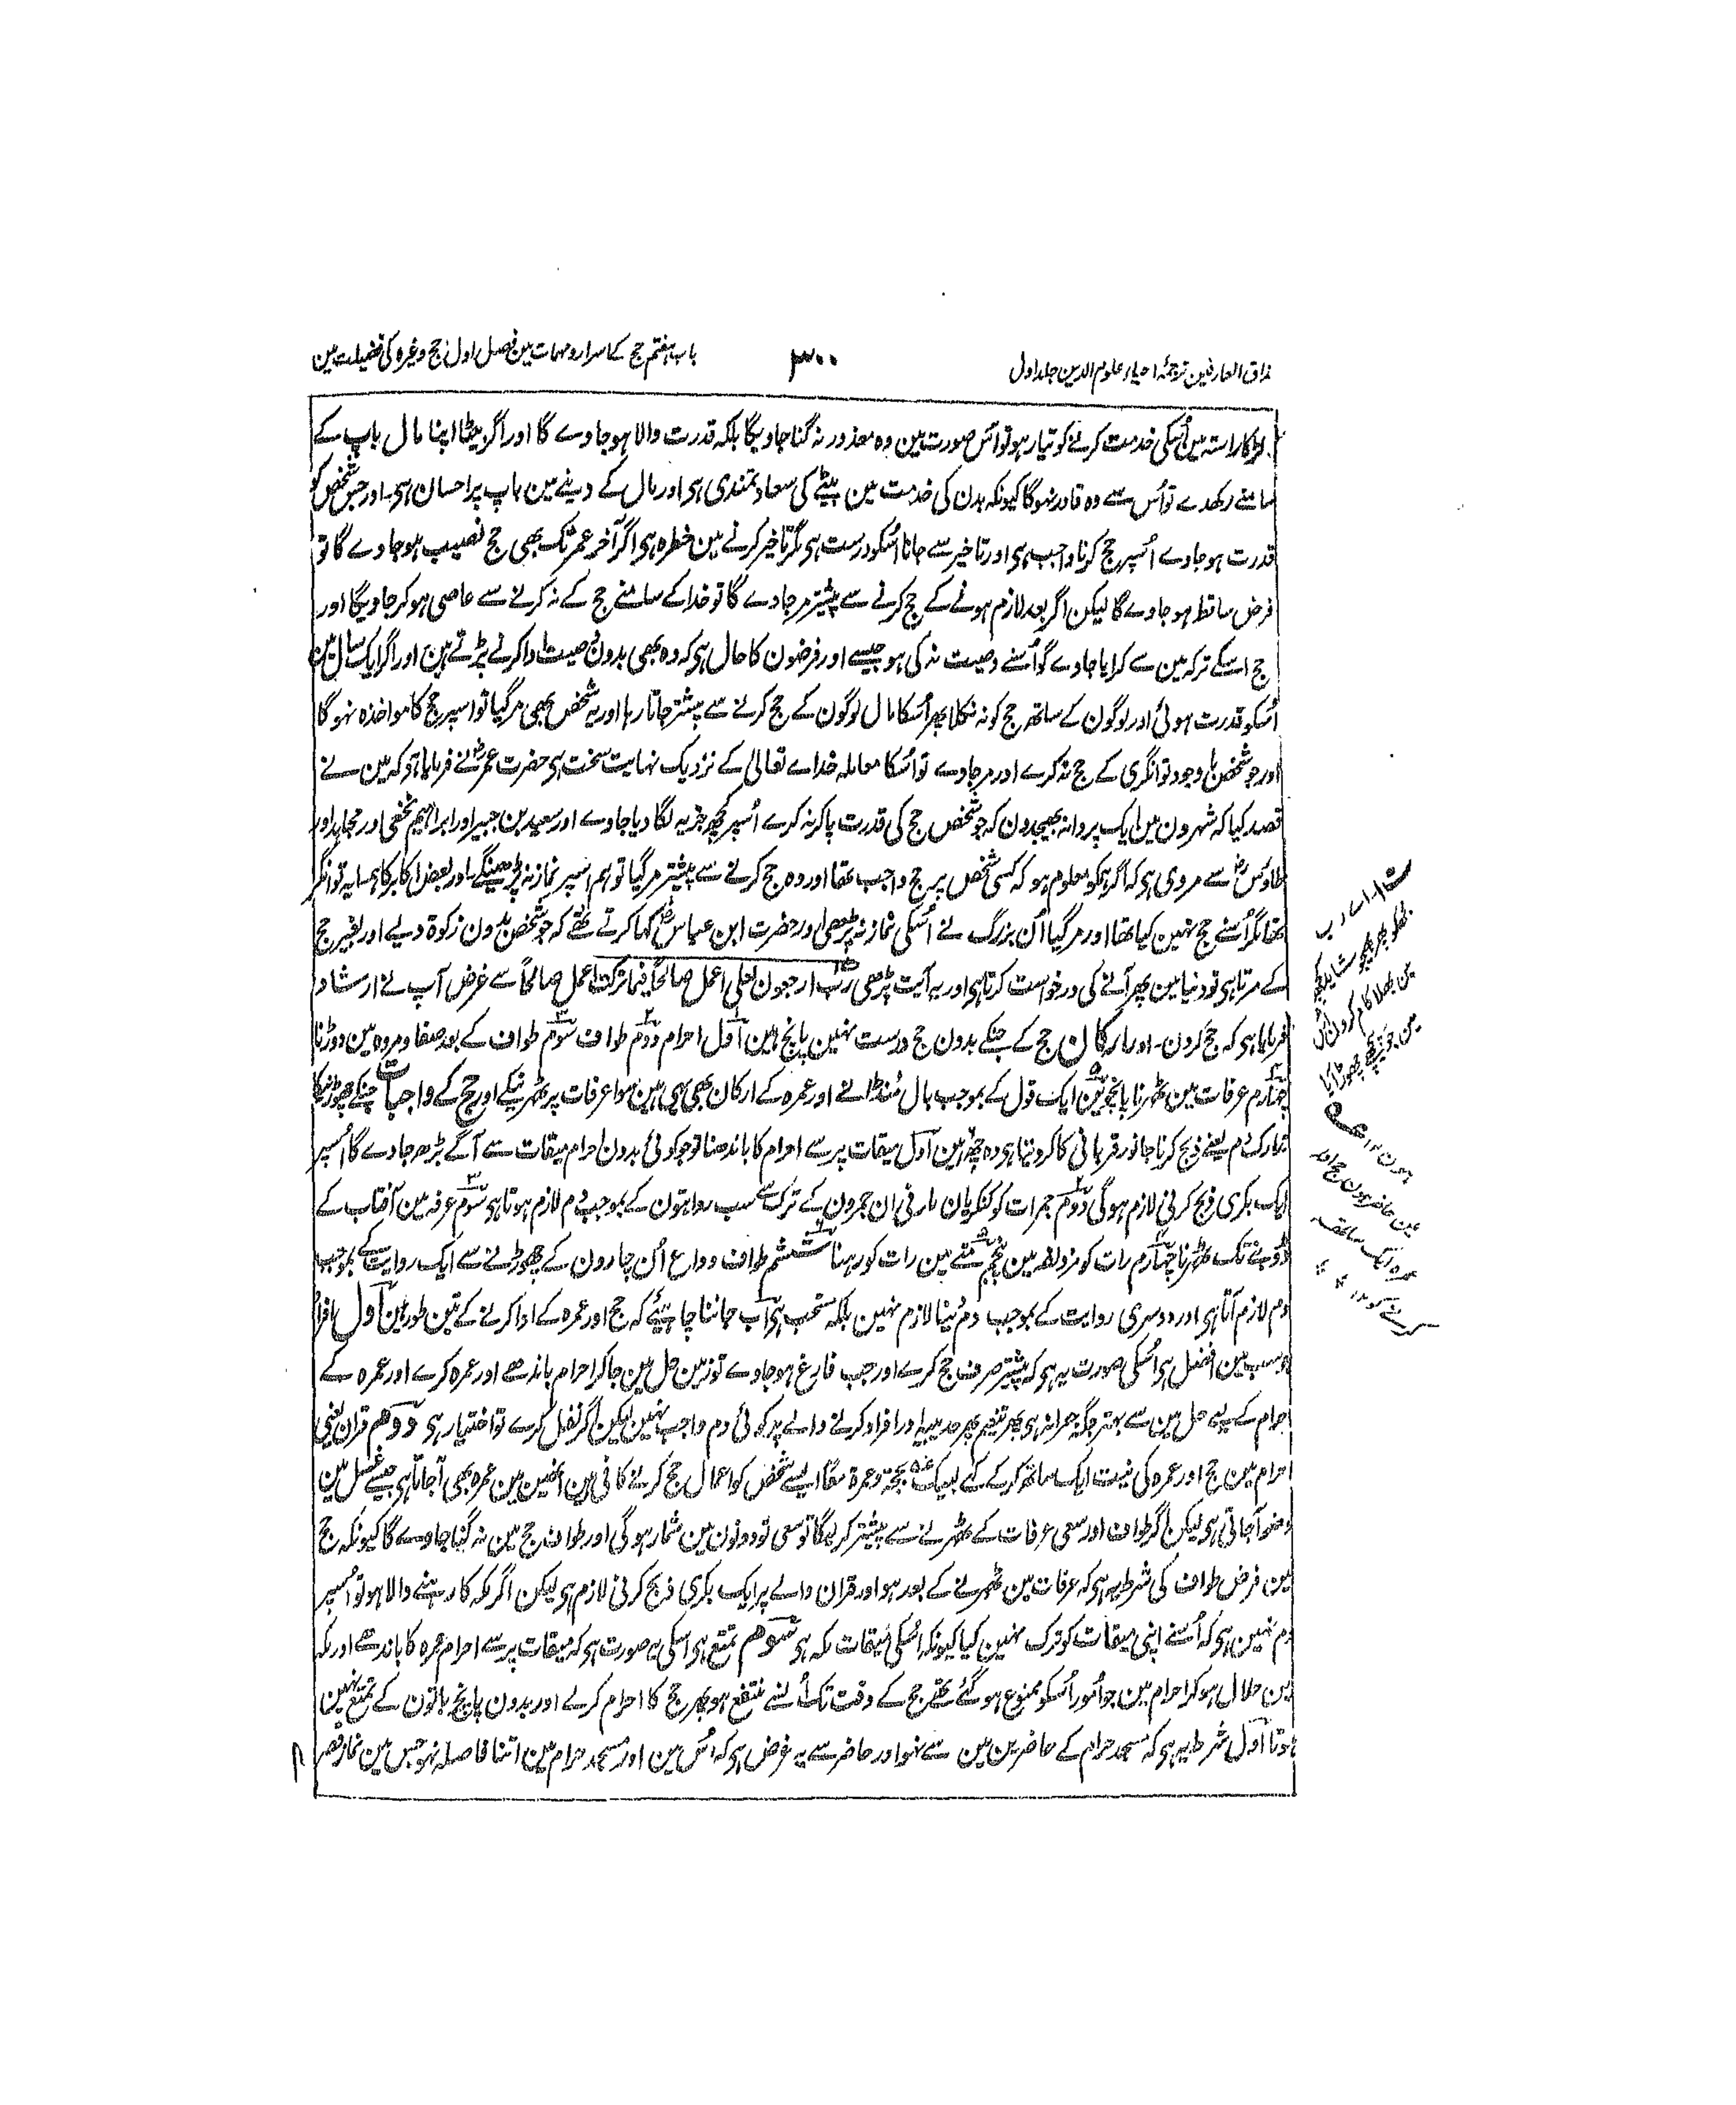 مذاق العارفین ترجمۂ احیاء علوم الدین جلد اول
۳۰۰
باب ہفتم حج کے اسرار و مہمات مین فصل اول حج وغیرہ کی فضیلت مین
لڑکا راستہ مین اُسکی خدمت کرنے کو تیار ہو تو اس صورت مین وہ معذور نہ گنا جاویگا بلکہ قدرت والا ہو جاوے گا اور اگر بیٹا اپنا مال باپ کے
سامنے رکھدے تو اُس سے وہ قادر نہوگا کیونکہ بدن کی خدمت مین بیٹے کی سعادتمندی ہی اور مال کے دینے مین باپ پر احسان ہی۔ اور جس شخص کو
قدرت ہو جاوے اُسپر حج کرنا واجب ہی اور تاخیر سے جانا اُسکو درست ہی مگر تاخیر کرنے مین خطرہ ہی اگر آخر عمر تک بھی حج نصیب ہو جاوے گا تو
فرض ساقط ہو جاوے گا لیکن اگر بعد لازم ہونے کے حج کرنے سے پیشتر مر جاوے گا تو خدا کے سامنے حج کے نہ کرنے سے عاصی ہو کر جاویگا اور
حج اسکے ترکہ مین سے کرایا جاوے گو اُسنے وصیت نہ کی ہو جیسے اور قرضون کا حال ہی کہ وہ بھی بدون وصیت ادا کرنے پڑتے ہین اور اگر ایک سال مین
اُسکو قدرت ہوئی اور لوگون کے ساتھ حج کو نہ نکلا پھر اُسکا مال لوگون کے حج کرنے سے پیشتر جاتا رہا اور یہ شخص بھی مر گیا تو اسپر حج کا مواخذہ نہوگا
اور جو شخص با وجود توانگری کے حج نہ کرے اور مر جاوے تو اُسکا معاملہ خداے تعالیٰ کے نزدیک نہایت سخت ہی حضرت عمر رض نے فرمایا ہی کہ مین نے
قصد کیا کہ شہرون مین ایک پروانہ بھیجدون کہ جو شخص حج کی قدرت پا کر نہ کرے اُسپر کچھ جزیہ لگا دیا جاوے اور سعید بن جبیر اور ابراہیم نخعی اور مجاہد اور
طاؤس سے مروی ہی کہ اگر ہمکو معلوم ہو کہ کسی شخص پر حج واجب تھا اور وہ حج کرنے سے پیشتر مر گیا تو ہم اسپر نماز نہ پڑھینگے اور بعض اکابر کا ہمسایہ توانگر
تھا مگر اُسنے حج نہین کیا تھا اور مر گیا اُن بزرگ نے اُسکی نماز نہ پڑھی اور حضرت ابن عباس رض کہا کرتے تھے کہ جو شخص بدون زکوۃ دیے اور بغیر حج
کے مرتا ہی تو دنیا مین پھر آنے کی درخواست کرتا ہی اور یہ آیت پڑھی رب ارجعون لعلی اعمل صالحاً فیما ترکت اعمل صالحاً سے غرض آپ نے ارشاد
فرمایا ہی کہ حج کرون۔ اور ارکان حج کے جنکے بدون حج درست نہین پانچ ہین اول احرام دوم طواف سوم طواف کے بعد صفا و مروہ مین دوڑنا
چہارم عرفات مین ٹھہرنا پانچوین ایک قول کے بموجب بال منڈانے اور عمرہ کے ارکان بھی یہی ہین سوا عرفات پر ٹھہرنیکے اور حج کے واجبات جنکے چھوڑنیکا
تدارک دم یعنے ذبح کرنا جانور قربانی کا کر دیتا ہی وہ چھ ہین اول میقات پر سے احرام کا باندھنا تو جو کوئی بدون احرام میقات سے آگے بڑھ جاوے گا اُسپر
ایک بکری ذبح کرنی لازم ہوگی دوم جمرات کو کنکریان مارنی ان جمرون کے ترک سے سب روایتون کے بموجب دم لازم ہوتا ہی سوم عرفہ مین آفتاب کے
ڈوبنے تک ٹھہرنا چہارم رات کو مزدلفہ مین پنجم منے مین رات کو رہنا ششم طواف وداع اُن چارون کے چھوڑنے سے ایک روایت کے بموجب
دم لازم آتا ہی اور دوسری روایت کے بموجب دم دینا لازم نہین بلکہ مستحب ہی اب جاننا چاہیئے کہ حج اور عمرہ کے ادا کرنے کے تین طور ہین اول افراد
جو سب مین افضل ہی اُسکی صورت یہ ہی کہ پیشتر صرف حج کرے اور جب فارغ ہو جاوے تو زمین حل مین جا کر احرام باندھے اور عمرہ کرے اور عمرہ کے
احرام کے لیے حل مین سے بہتر جگہ جعرانہ ہی پھر تنعیم پھر حدیبیہ اور افراد کرنے والے پر کوئی دم واجب نہین لیکن اگر نفل کرے تو اختیار ہی دوم قران یعنی
احرام مین حج اور عمرہ کی نیت ایک ساتھ کر کے کہے لبیک بحجۃ و عمرۃ معاً ایسے شخص کو اعمال حج کرنے کافی ہین انھین مین عمرہ بھی آ جاتا ہی جیسے غسل مین
وضو آ جاتی ہی لیکن اگر طواف اور سعی عرفات کے ٹھہرنے سے پیشتر کر لیگا تو سعی تو دونون مین شمار ہوگی اور طواف حج مین نہ گنا جاوے گا کیونکہ حج
مین فرض طواف کی شرط یہ ہی کہ عرفات مین ٹھہرنے کے بعد ہو اور قران والے پر ایک بکری ذبح کرنی لازم ہی لیکن اگر مکہ کا رہنے والا ہو تو اُسپر
دم نہین ہی کہ اُسنے اپنی میقات کو ترک نہین کیا کیونکہ اُسکی میقات مکہ ہی سوم تمتع ہی اسکی یہ صورت ہی کہ میقات پر سے احرام عمرہ کا باندھے اور مکہ
مین حلال ہو کر احرام مین جو امور اُسکو ممنوع ہو گئے تھے حج کے وقت تک اُنسے منتفع ہو پھر حج کا احرام کرلے اور بدون پانچ باتون کے تمتع نہین
ہوتا اول شرط یہ ہی کہ مسجد حرام کے حاضرین مین سے نہو اور حاضر سے یہ غرض ہی کہ اُس مین اور مسجد حرام مین اتنا فاصلہ نہو جس مین نماز قصر
اے رب
مجھکو پھر بھیجو شاید کچھ
مین بھلا کام کرون اُس
مین جو پیچھے چھوڑ آیا
ہون ۱۲
مین حاضر ہون حج اور
عمرہ ایک ساتھ
کرنے کو ۱۲